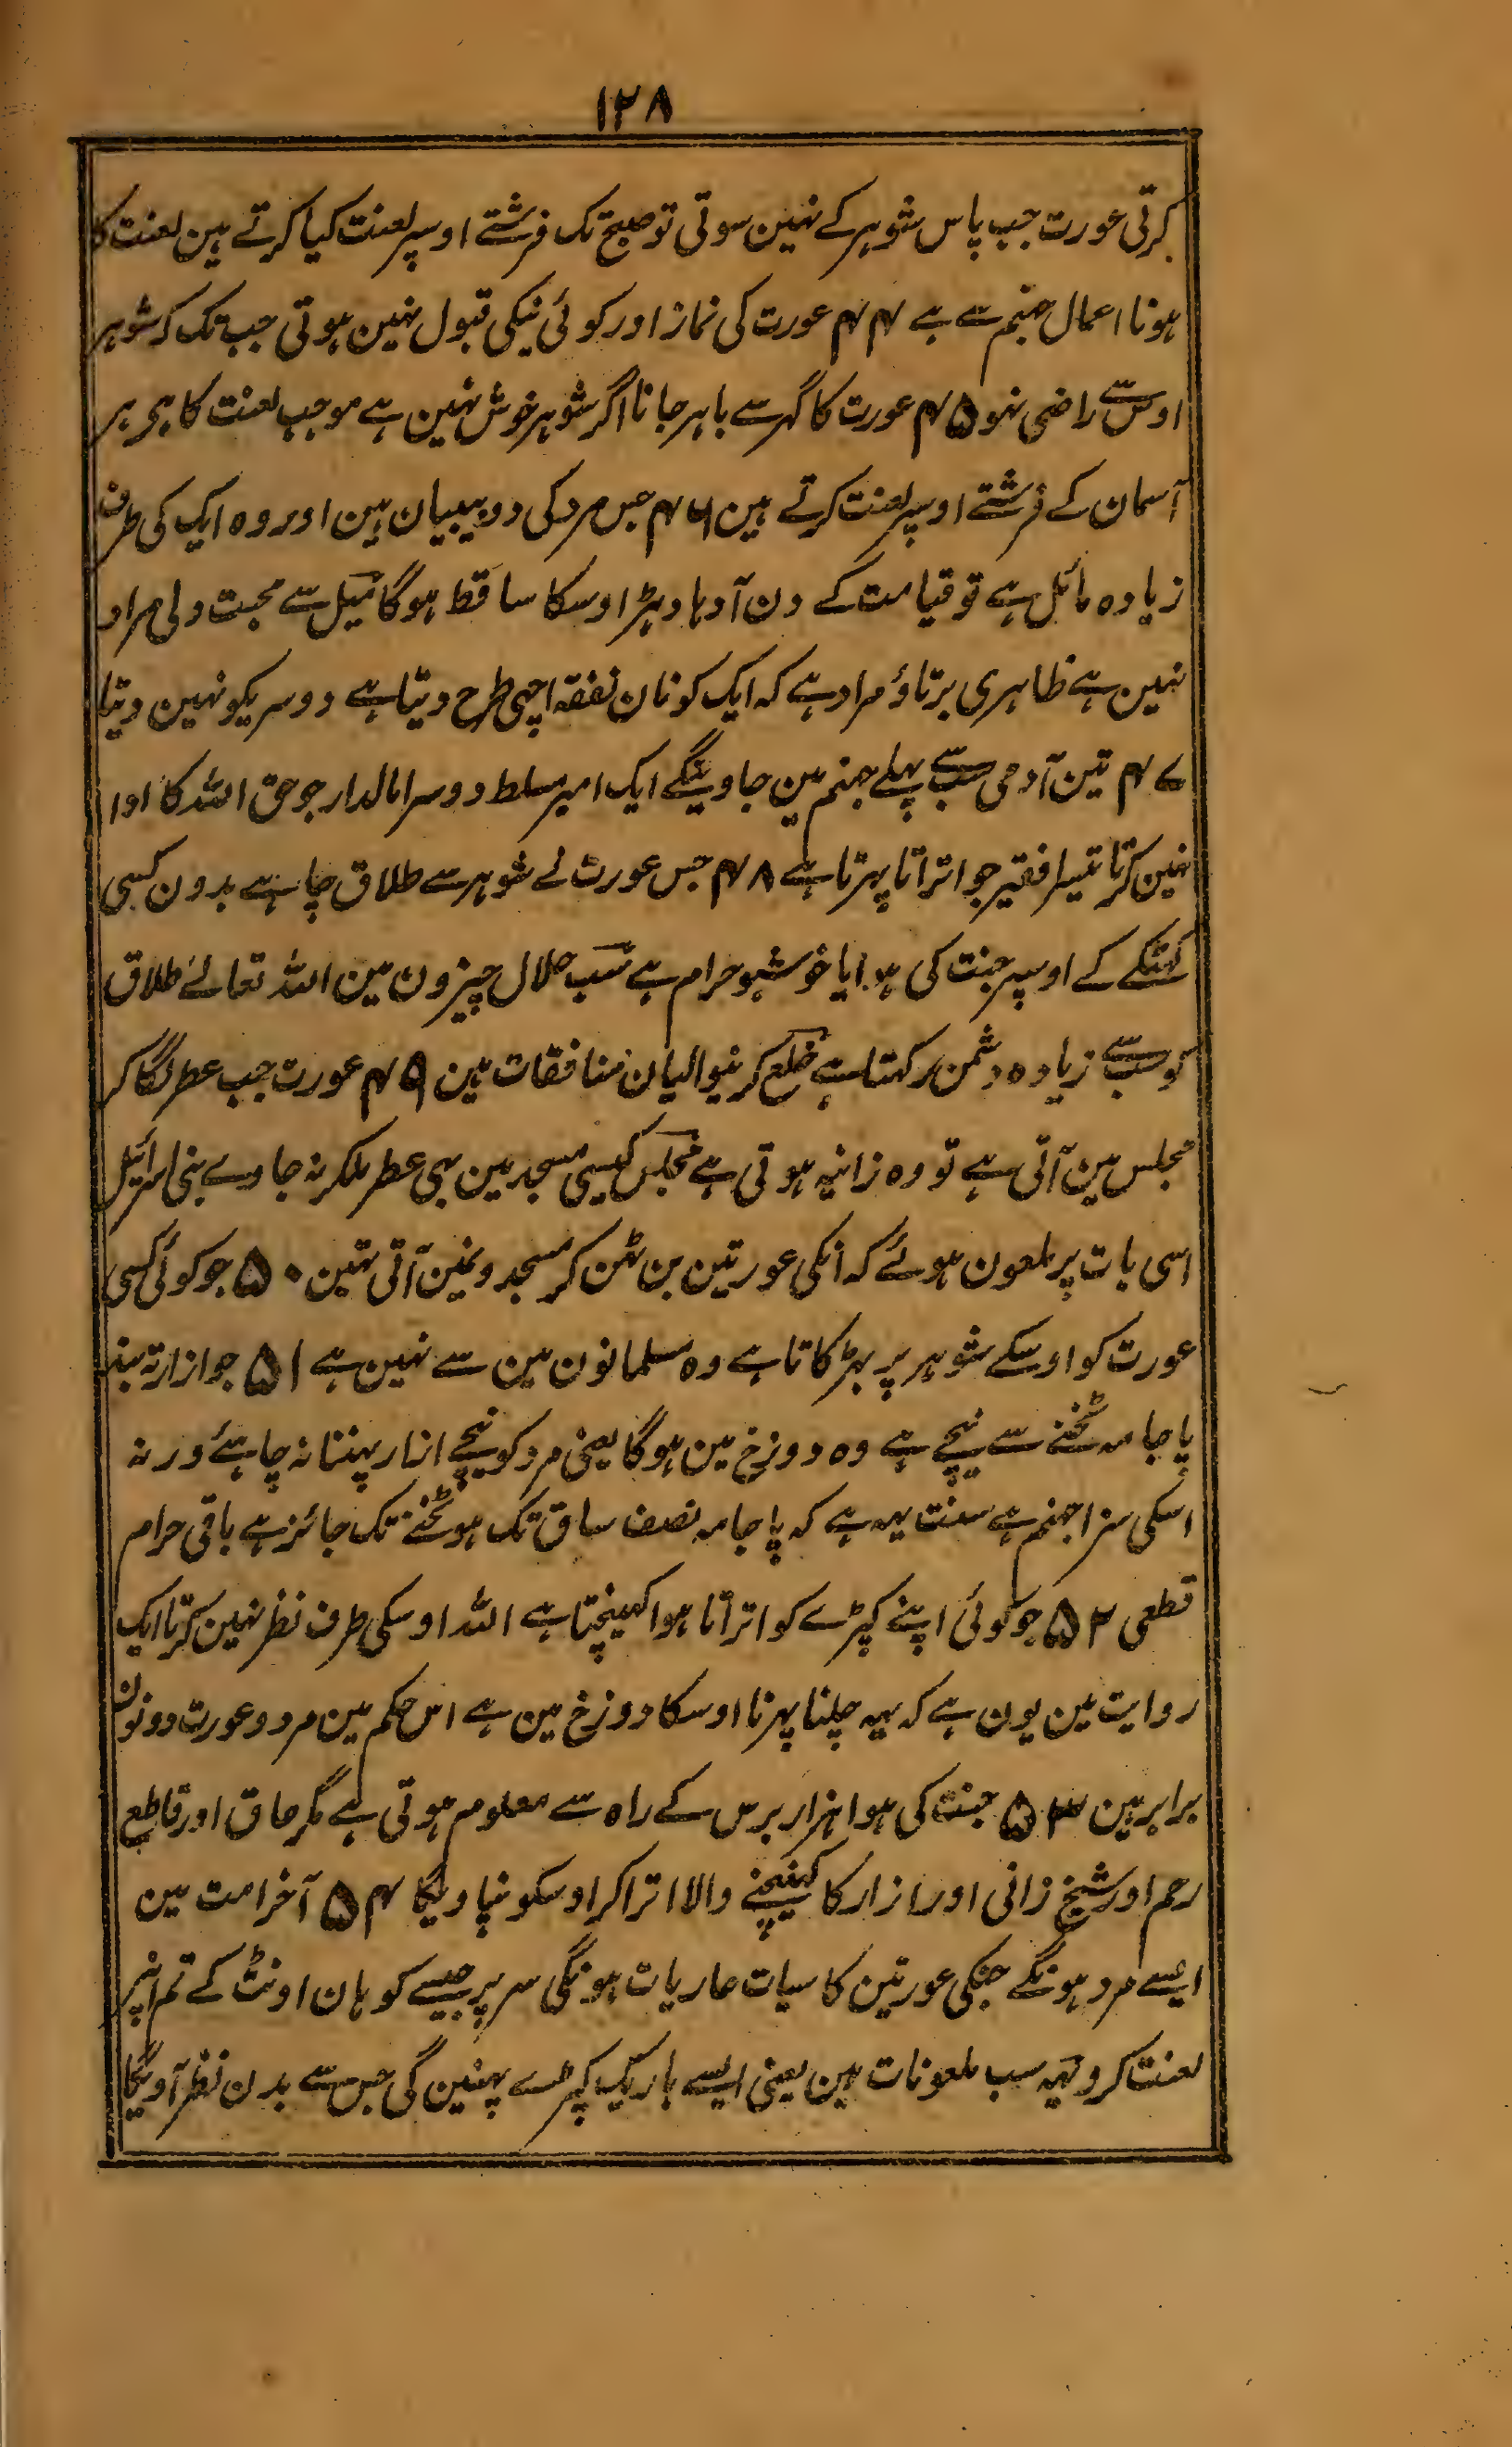 ۱۲۸
کرتی عورت جب پاس شوہر کے نہین سوتی تو صبح تک فرشتے اوسپر لعنت کیا کرتے ہین لعنت کا
ہونا اعمال جہنم سے ہے ۴۴ عورت کی نماز اور کوئی نیکی قبول نہین ہوتی جب تک کہ شوہر
اوس سے راضی نہو ۴۵ عورت کا گہر سے باہر جانا اگر شوہر خوش نہین ہے موجب لعنت کا ہی ہر
آسمان کے فرشتے اوسپر لعنت کرتے ہین ۴۶ جس مرد کی دو بیبیان ہین اور وہ ایک کی طرف
زیادہ مائل ہے تو قیامت کے دن آدہا دہڑ اوسکا ساقط ہوگا میل سے محبت دلی مراد
نہین ہے ظاہری برتاؤ مراد ہے کہ ایک کو نان نفقہ اچھی طرح دیتا ہے دوسریکو نہین دیتا
۴۷ تین آدمی سب سے پہلے جہنم مین جاوینگے ایک امیر مسلط دوسرا مالدار جو حق اللہ کا ادا
نہین کرتا تیسرا فقیر جو اتراتا پہرتا ہے ۴۸ جس عورت نے شوہر سے طلاق چاہے بدون کسی
کہٹکے کے اوسپر جنت کی ہوا یا خوشبو حرام ہے سب حلال چیزون مین اللہ تعالےٰ طلاق
کو سب سے زیادہ دشمن رکہتا ہے خلع کرنیوالیان منافقات ہین ۴۹ عورت جب عطر لگا کر
مجلس مین آتی ہے تو وہ زانیہ ہوتی ہے مجلس کیسی مسجد مین بہی عطر ملکر نہ جاوے بنی اسرائیل
اسی بات پر ملعون ہوئے کہ انکی عورتین بن ٹھن کر مسجد ونمین آتی تہین ۵۰ جو کوئی کسی
عورت کو اوسکے شوہر پر بہڑکاتا ہے وہ مسلمانون مین سے نہین ہے ۵۱ جو ازار تہ بند
پاجامہ ٹخنے سے نیچے ہے وہ دوزخ مین ہوگا یعنی مرد کو نیچے ازار پہننا نہ چاہئے ورنہ
اسکی سزا جہنم ہے سنت یہہ ہے کہ پاجامہ نصف ساق تک ہو ٹخنے تک جائز ہے باقی حرام
قطعی ۵۲ جو کوئی اپنے کپڑے کو اتراتا ہوا کہینچتا ہے اللہ اوسکی طرف نظر نہین کرتا ایک
روایت مین یون ہے کہ یہہ چلنا پہرنا اوسکا دوزخ مین ہے اس حکم مین مرد و عورت دونون
برابر ہین ۵۳ جنت کی ہوا ہزار برس کے راہ سے معلوم ہوتی ہے مگر عاق اور قاطع
رحم اور شیخ زانی اور ازار کا کہینچنے والا اترا کر اوسکو نپاویگا ۵۴ آخر امت مین
ایسے مرد ہونگے جنکی عورتین کاسیات عاریات ہونگی سر پر جیسے کوہان اونٹ کے تم انپر
لعنت کرو یہہ سب ملعونات ہین یعنی ایسے باریک کپڑے پہنین گی جس سے بدن نظر آویگا